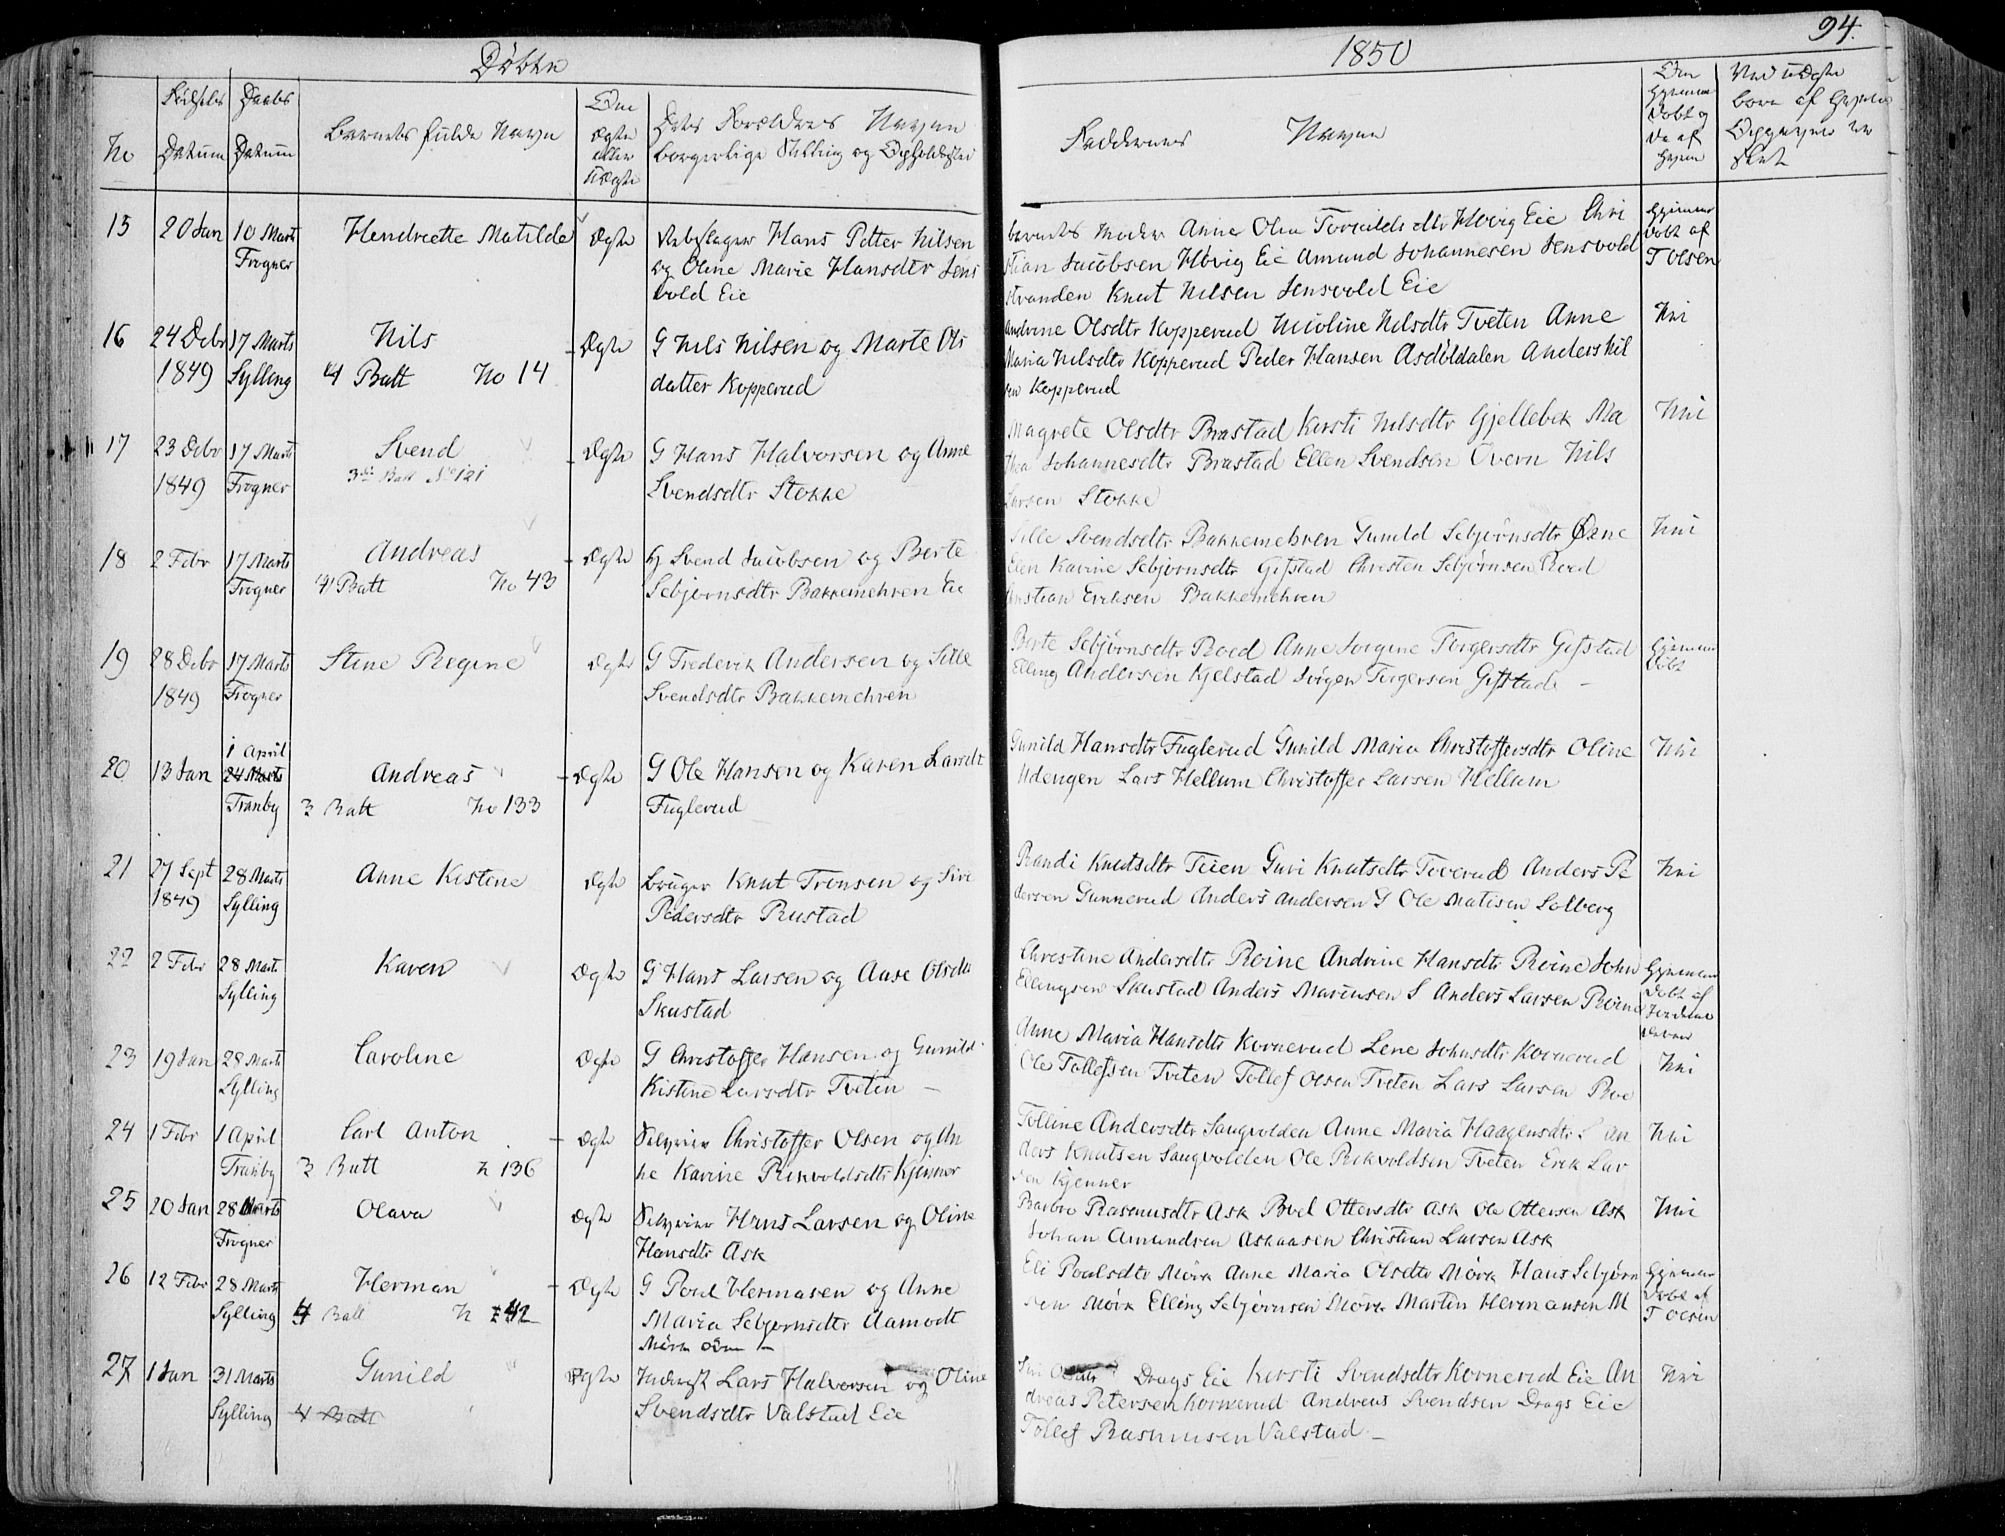 Døbte
1850
94.
No
Fødsels Datum
Daabs Datum
Barnets fulde Navn
Om Ægte eller Uægte
Dets Forældres Navn
borgerlige Stilling og Opholdssted
Faddernes Navne
Om Hjemmedøbt og da af hvem
15
20 Jan
10 Marts
Frogner
Hendrette Matilde
Ægte
Hans Petter Nilsen
og Oline Marie Hansdtr Jens
vold Eie
barnets Moder Anne Olea Torvildsdtr Høvig Eie Chri
stian Jacobsen Høvig Eie Amund Johannesen Jensvold
stranden Knut Nilsen Jensvold Eie
Hjemme
døbt af
T Olsen
16
24 Debr
1849
17 Marts
Sylling
Nils
4 Batt No 14
Ægte
G Nils Nilsen og Marte Ols
datter Kopperud
Andrine Olsdtr Kopperud Nicoline Nilsdtr Tveten Anne
Maria Nilsdtr Kopperud Peder Hansen Asdøldalen Anders Nil
sen Kopperud
Nei
17
23 Debr
1849
17 Marts
Frogner
Svend
3die Batt No 121
Ægte
G Hans Halvorsen og Anne
Svendsdtr Stokke
Magrete Olsdtr Brastad Kersti Nilsdtr Gjellebek Ma
thea Johannesdtr Brastad Ellen Svendsen Overn Nils
Larsen Stokke
Nei
18
2 Febr
17 Marts
Frogner
Andreas
4 Batt No 43
Ægte
H Svend Jacobsen og Berte
Sebjørnsdtr Bakkemehren Eie
Sille Svendsdtr Bakkemehren Gunild Sebjørnsdtr
Elen Karine Sebjørnsdtr Gifstad Christen Sebjørnsen Roed
Christian Eriksen Bakkemehren
Nei
19
28 Debr
1849
17 Marts
Frogner
Stine Regine
Ægte
G Frederik Andersen og Sille
Svendsdtr Bakkemehren
Berte Sebjørnsdtr Roed Anne Jorgine Torgersdtr Gifstad
Elling Andersen Kjelstad Jørgen Torgersen Gifstade –
Hjemme
døbt
20
13 Jan
1 April
24 Marts
Tranby
Andreas
3 Batt No 133
Ægte
G Ole Hansen og Karen Larsdt
Fuglerud
Gunild Hansdtr Fuglerud Gunild Maria Christoffersdtr Oline
Udengen Lars Hellum Christoffer Larsen Hellum
Nei
21
27 Sept
1849
28 Marts
Sylling
Anne Kistine
Ægte
Bruger Knut Tronsen og Siri
Pedersdtr Rustad
Randi Knutsdtr Teien Guri Knutsdtr Toverud Anders Pe
dersen Gunnerud Anders Andersen G Ole Matisen Solberg
Nei
22
2 Febr
28 Marts
Sylling
Karen
Ægte
G Hans Larsen og Aase Olsdtr
Skustad
Christine Andersdtr Roine Andrine Hansdtr Roine John
Ellingsen Skustad Anders Marinsen S Anders Larsen Roine
Hjemme
døbt af
23
19 Jan
28 Marts
Sylling
Caroline
Ægte
G Christoffer Hansen og Gunild
Kistine Larsdtr Tveten –
Anne Maria Hansdtr Kornerud Lene Johnsdtr Kornerud
Ole Tollefsen Tveten Tollef Olsen Tveten Lars Larsen Roe
Nei
24
1 Febr
1 April
Tranby
Carl Anton
3 Batt N 136
Ægte
Selveier Christoffer Olsen og An
ne Karine Rekvoldsdtr Kjenner
Tolline Andersdtr Saugvolden Anne Maria Haagensdtr S An
ders Knutsen Saugvolden Ole Rekvoldsen Tveten Erik Lar
sen Kjenner
Nei
25
20 Jan
28 Marts
Frogner
Olava
Ægte
Selveier Hans Larsen og Oline
Hansdtr Ask
Barbro Rasmusdtr Ask Boel Ottersdtr Ask Ole Ottersen Ask
Johan Amundsen Askaasen Christian Larsen Ask
Nei
26
12 Febr
28 Marts
Sylling
Herman
4 Batt N 42
Ægte
G Poul Hermasen og Anne
Maria Sebjørnsdtr Aamodt
Eli Poulsdtr Mørk Anne Maria Olsdtr Mørk Hans Sebjørn
sen Mørk Elling Sebjørnsen Mørk Martin Hermansen M
Hjemme
døbt af
T Olsen
27
1 Jan
31 Marts
Sylling
Gunild
4 Batt
Ægte
Inderst Lars Halvorsen og Oline
Svendsdtr Valstad Eie
Drags Eie Kersti Svendsdtr Kornerud Eie An
dreas Petersen Kornerud Andreas Svendsen Drags Eie
Tollef Rasmusen Valstad –
Nei